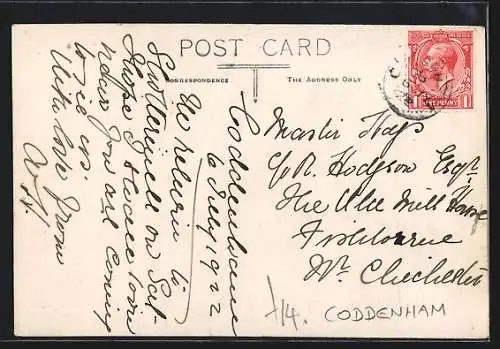 POST CARD
CORRESPONDENCE
THE ADDRESS ONLY
ONE PENNY
Coddenham
6 July 1922
We return to
on Sat-
urday
I hope
you are coming
to see us
With love from
Master Hays
c/o R. Hodgson Esqr
The Old Mill House
Fishbourne
Nr. Chichester
7/4. CODDENHAM